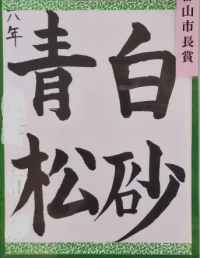 山市長賞
白砂
青松
八年